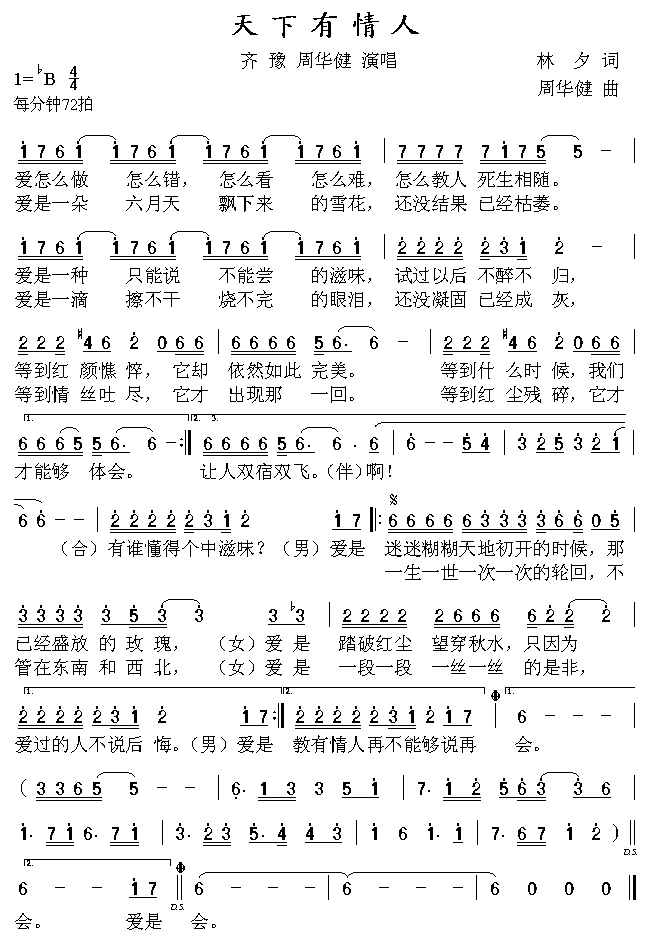 天下有情人
齐 豫 周华健 演唱
林 夕 词
1=♭B 4/4
周华健 曲
每分钟72拍
1761 1761 1761 1761 7777 7175 5 –
爱怎么做 怎么错，怎么看 怎么难，怎么教人 死生相随。
爱是一朵 六月天 飘下来 的雪花，还没结果 已经枯萎。
1761 1761 1761 1761 2222 231 2 –
爱是一种 只能说 不能尝 的滋味，试过以后 不醉不 归，
爱是一滴 擦不干 烧不完 的眼泪，还没凝固 已经成 灰，
222 #46 2 066 6666 56. 6 – 222 #46 2 066
等到红 颜憔 悴，它却 依然如此 完美。 等到什 么时 候，我们
等到情 丝吐 尽，它才 出现那 一回。 等到红 尘残 碎，它才
1. 2. 3.
6665 56. 6 – :‖ 6666 56. 6. 6 6 – – 54 3253 221
才能够 体会。 让人双宿双飞。（伴）啊！
66 – – 2222 231 2 17 ‖: 6666 6333 366 05
（合）有谁懂得个中滋味？（男）爱是 迷迷糊糊天地初开的时候，那
一生一世一次一次的轮回，不
3333 353 3 3♭3 2222 2666 622 2
已经盛放 的 玫 瑰，（女）爱 是 踏破红尘 望穿秋水，只因为
管在东南 和 西 北，（女）爱 是 一段一段 一丝一丝 的是非，
1. 2. 1.
2222 231 2 17 :‖ 2222 231 2 17 6 – – –
爱过的人不说后 悔。（男）爱是 教有情人再不能够说再 会。
（ 3365 5 – – 6. 13 3 51 7. 12 563 3
1. 716. 71 3. 235. 443 1 61. 1 7. 671 2 ）‖
D.S.
2.
6 – – 17 ‖ 6 – – – 6 – – – 6 0 0 0 ‖
D.S.
会。 爱是 会。